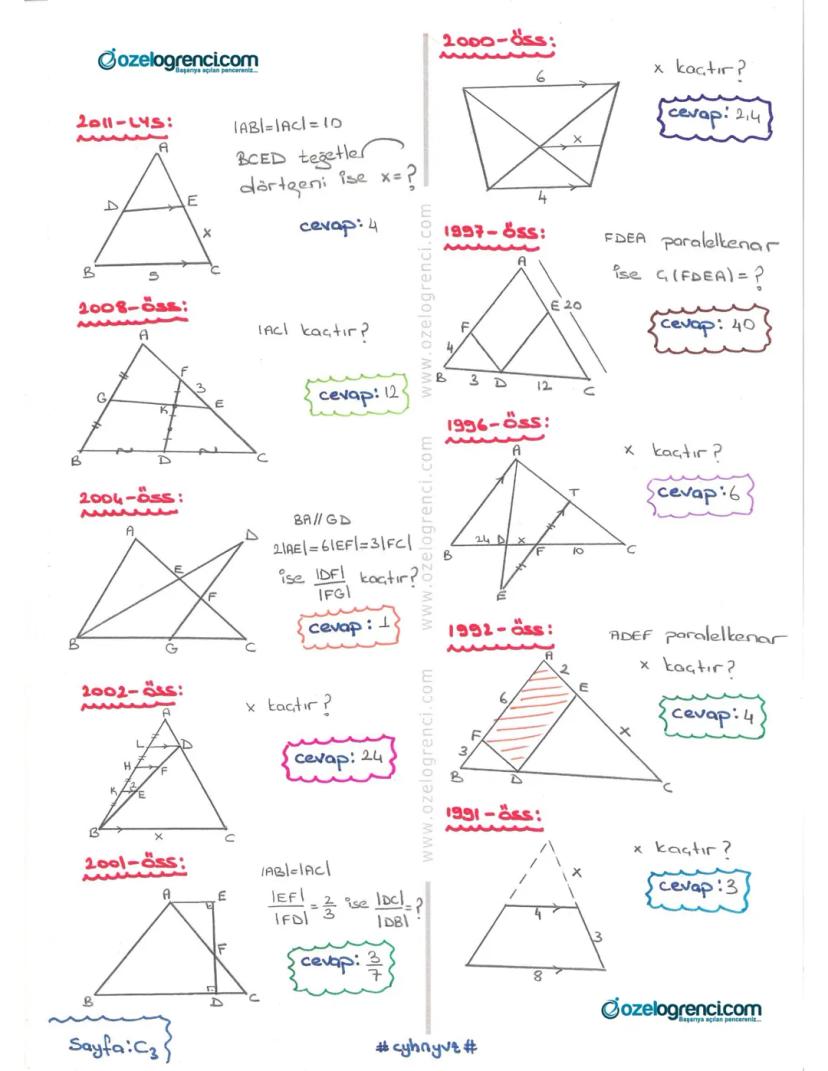 özelogrenci.com
Başarıya açılan pencereniz...
2011-LYS:
|AB|=|AC|=10
BCED teğetler
dörtgeni ise x=?
cevap: 4
A
D
E
x
B
5
C
2008-öss:
|AC| kaçtır?
cevap: 12
A
F
3
G
K
E
B
D
C
2004-öss:
BA//GD
2|AE|=6|EF|=3|FC|
ise |DF|/|FG| kaçtır?
cevap: 1
A
D
E
F
B
G
C
2002-öss:
x kaçtır?
cevap: 24
A
L
D
H
F
K
3
E
B
x
C
2001-öss:
|AB|=|AC|
|EF|/|FD| = 2/3 ise |DC|/|DB| = ?
cevap: 3/7
A
E
F
B
D
C
Sayfa:C3
2000-öss:
x kaçtır?
cevap: 2,4
6
x
4
1997-öss:
FDEA paralelkenar
ise Ç(FDEA)=?
cevap: 40
A
E
20
F
4
B
3
D
12
C
1996-öss:
x kaçtır?
cevap: 6
A
T
B
24
D
x
F
10
C
E
1992-öss:
ADEF paralelkenar
x kaçtır?
cevap: 4
A
2
6
E
F
x
3
B
D
C
1991-öss:
x kaçtır?
cevap: 3
x
4
3
8
www.ozelogrenci.com
www.ozelogrenci.com
www.ozelogrenci.com
özelogrenci.com
Başarıya açılan pencereniz...
#cyhnyvz#